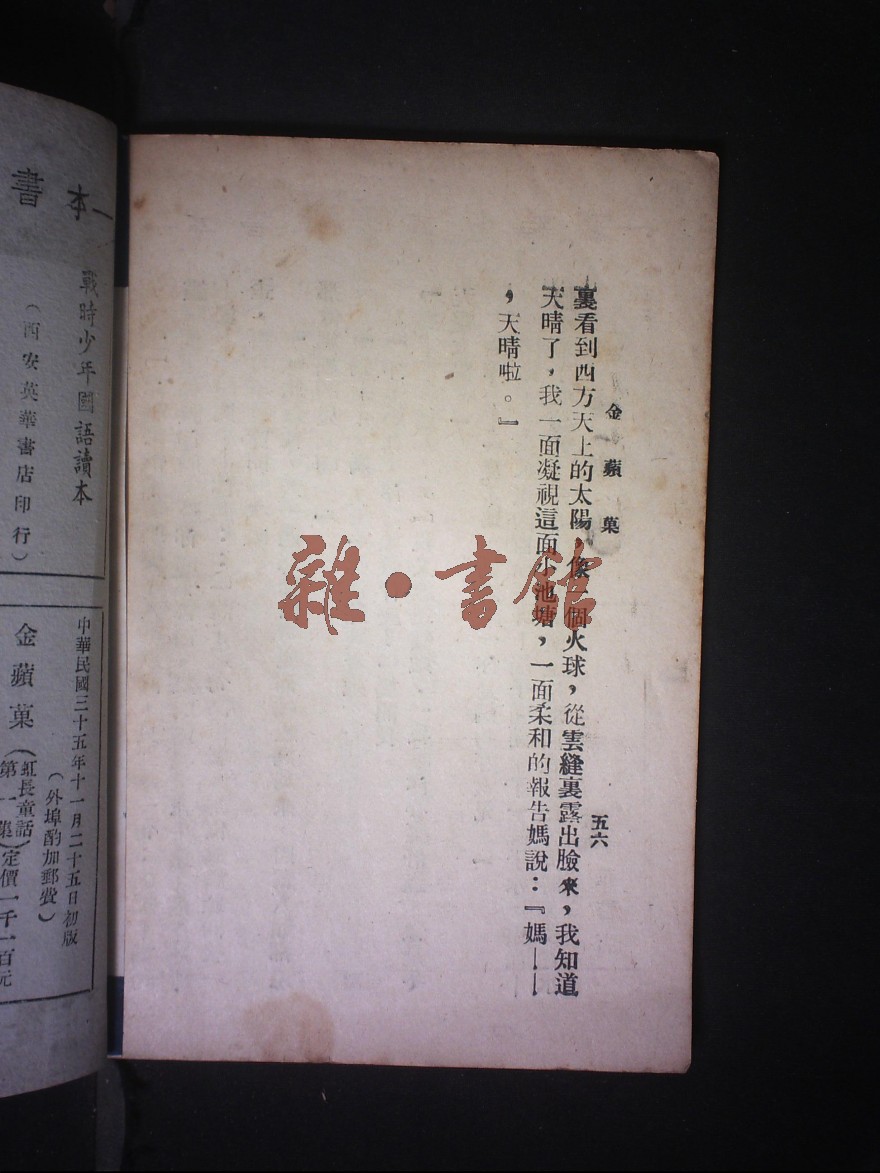 金蘋菓
五六
裏看到西方天上的太陽，像一個火球，從雲縫裏露出臉來，我知道
天晴了，我一面凝視這面小池塘，一面柔和的報告媽說：『媽——
，天晴啦。』
雜·書館
一本書
戰時少年國語讀本
（西安英華書店印行）
中華民國三十五年十一月二十五日初版
（外埠酌加郵費）
金蘋菓（虹長童話第一集）定價一千一百元